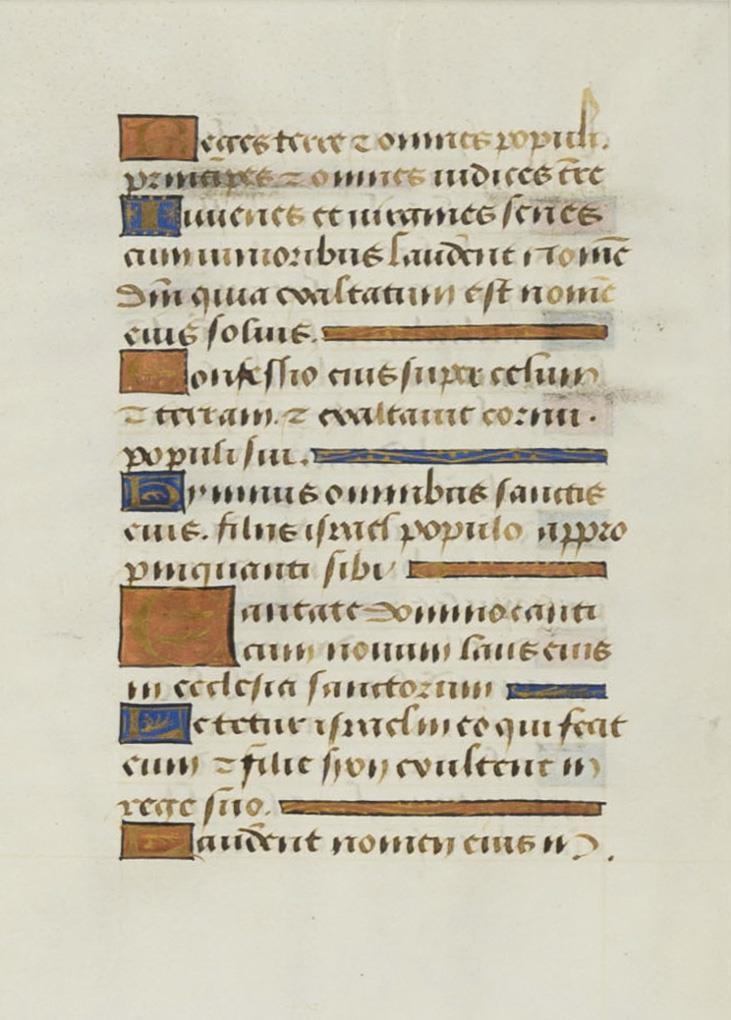 Reges terre ⁊ omnes populi.
principes ⁊ omnes iudices tr̄e
Iuuenes et uirgines senes
cum iunioribus laudent nomē
dn̄i quia exaltatum est nomē
eius solius.
Confessio eius super celum
⁊ terram. ⁊ exaltauit cornu.
populi sui.
Hymnus omnibus sanctis
eius. filiis israel populo appro
pinquanti sibi
Cantate domino canti
cum nouum laus eius
in ecclesia sanctorum
Letetur israel in eo qui fecit
eum ⁊ filie syon exultent in
rege suo.
Laudent nomen eius in.